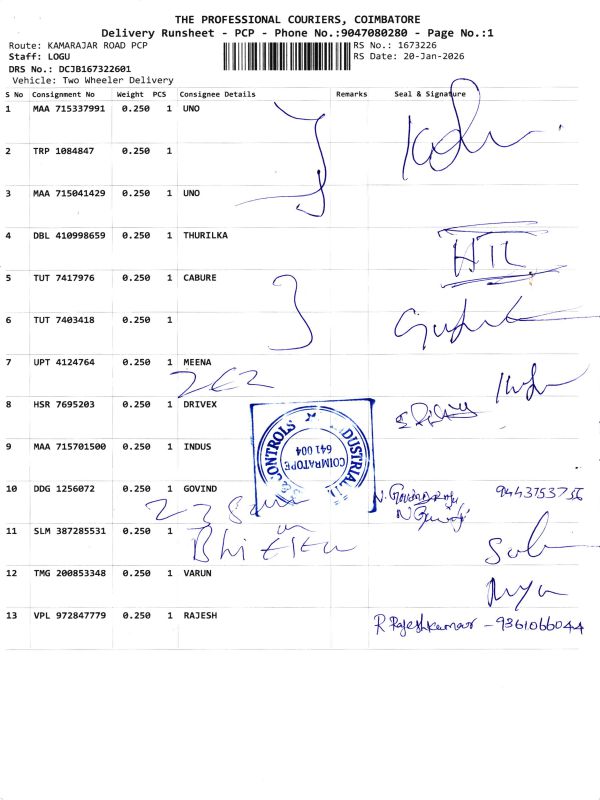 THE PROFESSIONAL COURIERS, COIMBATORE
Delivery Runsheet - PCP - Phone No.:9047080280 - Page No.:1
Route: KAMARAJAR ROAD PCP
RS No.: 1673226
Staff: LOGU
RS Date: 20-Jan-2026
DRS No.: DCJB167322601
Vehicle: Two Wheeler Delivery
S No Consignment No Weight PCS Consignee Details Remarks Seal & Signature
1 MAA 715337991 0.250 1 UNO
2 TRP 1084847 0.250 1
3 MAA 715041429 0.250 1 UNO
4 DBL 410998659 0.250 1 THURILKA
HTL
5 TUT 7417976 0.250 1 CABURE
6 TUT 7403418 0.250 1
7 UPT 4124764 0.250 1 MEENA
262
8 HSR 7695203 0.250 1 DRIVEX
CONTROLS INDUSTRIAL
COIMBATORE
641 004
9 MAA 715701500 0.250 1 INDUS
10 DDG 1256072 0.250 1 GOVIND
N. Govindaraju 9443753756
11 SLM 387285531 0.250 1
12 TMG 200853348 0.250 1 VARUN
13 VPL 972847779 0.250 1 RAJESH
R Rajeshkumar - 9361066044